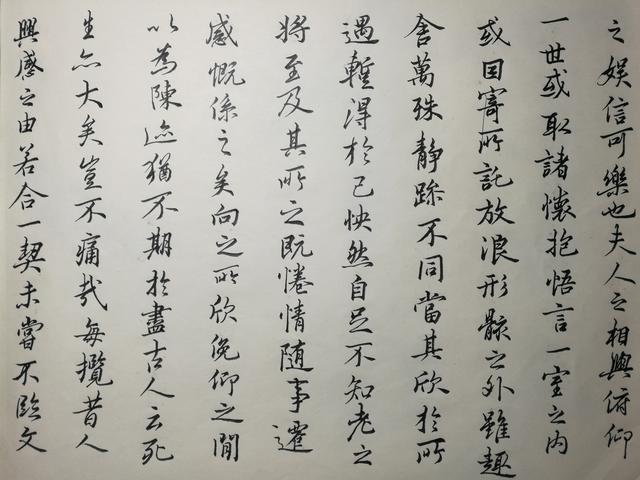 之娱信可樂也夫人之相與俯仰
一世或取諸懷抱悟言一室之内
或因寄所託放浪形骸之外雖趣
舍萬殊静躁不同當其欣於所
遇暫得於己怏然自足不知老之
将至及其所之既惓情随事遷
感慨係之矣向之所欣俛仰之閒
以為陳迹猶不期於盡古人云死
生亦大矣豈不痛哉每攬昔人
興感之由若合一契未嘗不臨文